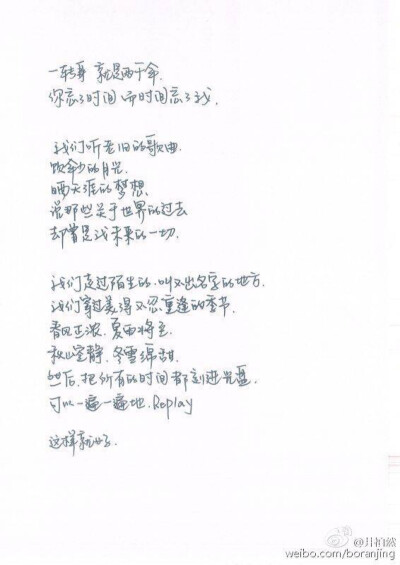 一转身 就是两个命.
你忘了时间 而时间忘了我.
我们听老旧的歌曲.
的月光.
晒天涯的梦想.
说那些关于世界的过去
却曾是我未来的一切.
我们走过陌生的.叫不出名字的地方.
我们穿过美得不忍重逢的季节.
春风正浓.夏雨将至.
秋山空静.冬雪绵甜.
然后.把所有的时间都刻进光盘.
可以一遍一遍地.Replay
这样就好了.
@井柏然
weibo.com/boranjing